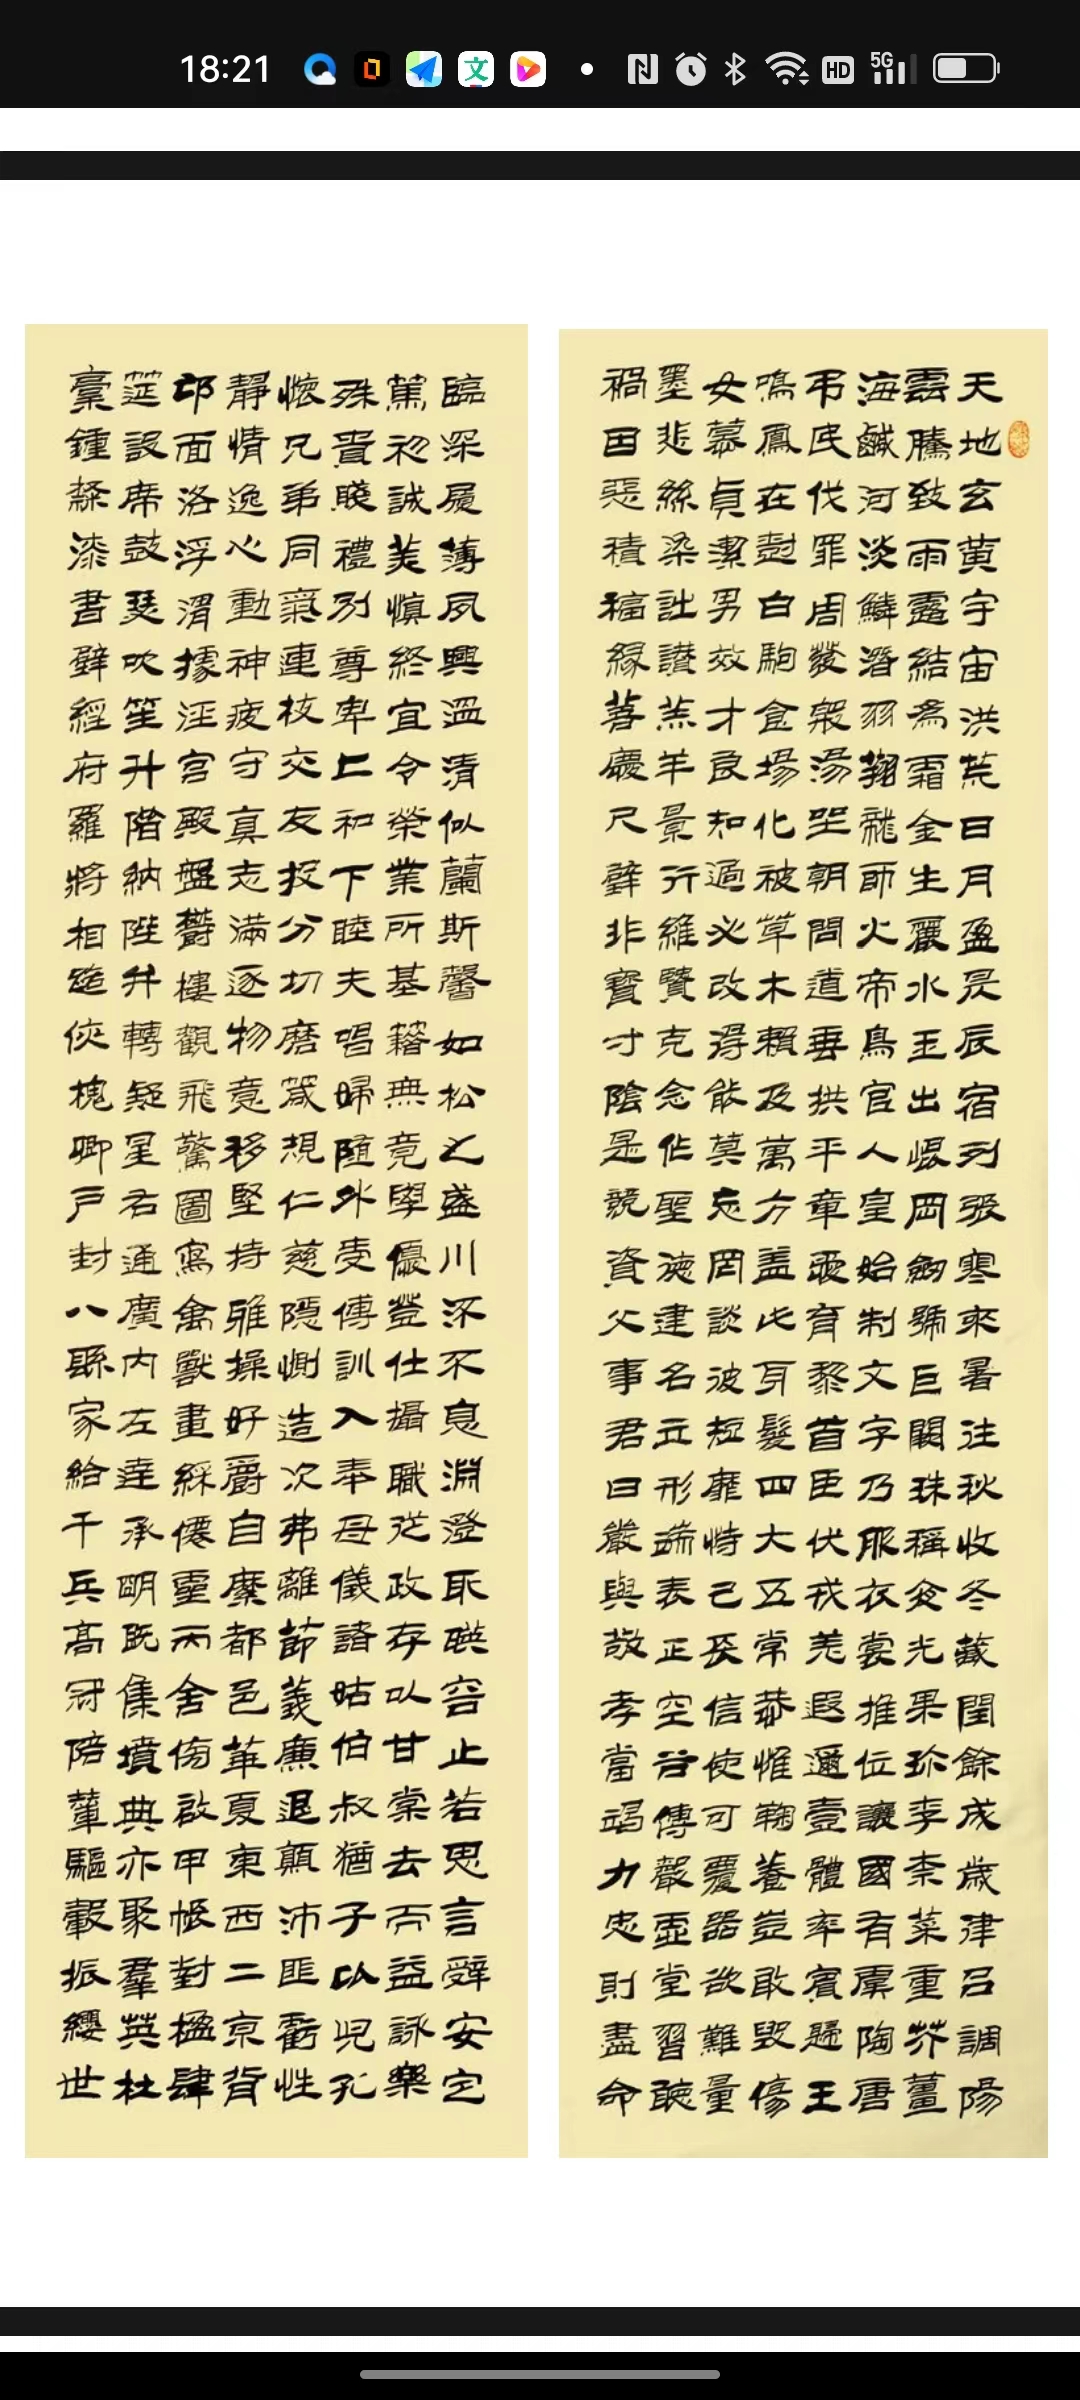 18:21
文
HD
5G
天地玄黄宇宙洪荒日月盈昃辰宿列張寒來暑往秋收冬藏閏餘成歲律吕調陽
雲騰致雨露結為霜金生麗水玉出崐岡劍號巨闕珠稱夜光果珍李柰菜重芥薑
海鹹河淡鱗潛羽翔龍師火帝鳥官人皇始制文字乃服衣裳推位讓國有虞陶唐
弔民伐罪周發殷湯坐朝問道垂拱平章愛育黎首臣伏戎羌遐邇壹體率賓歸王
鳴鳳在尌白駒食場化被草木賴及萬方蓋此身髮四大五常恭惟鞠養豈敢毀傷
女慕貞潔男效才良知過必改得能莫忘罔談彼短靡恃己長信使可覆器欲難量
墨悲絲染詩讚羔羊景行維賢克念作聖德建名立形端表正空谷傳聲虛堂習聽
禍因惡積福緣善慶尺璧非寶寸陰是競資父事君曰嚴與敬孝當竭力忠則盡命
臨深履薄夙興溫清似蘭斯馨如松之盛川流不息淵澄取映容止若思言辭安定
篤初誠美慎終宜令榮業所基籍無竟學優登仕攝職從政存以甘棠去而益詠樂
殊貴賤禮別尊卑上和下睦夫唱婦隨外受傅訓入奉母儀諸姑伯叔猶子比兒孔
懷兄弟同氣連枝交友投分切磨箴規仁慈隱惻造次弗離節義廉退顛沛匪虧性
靜情逸心動神疲守真志滿逐物意移堅持雅操好爵自縻都邑華夏東西二京背
邙面洛浮渭據涇宮殿盤鬱樓觀飛驚圖寫禽獸畫綵僊靈丙舍傍啟甲帳對楹肆
筵設席鼓瑟吹笙升階納陛弁轉疑星右通廣內左達承明既集墳典亦聚羣英杜
稾鍾隸漆書壁經府羅將相路俠槐卿戶封八縣家給千兵高冠陪輦驅轂振纓世